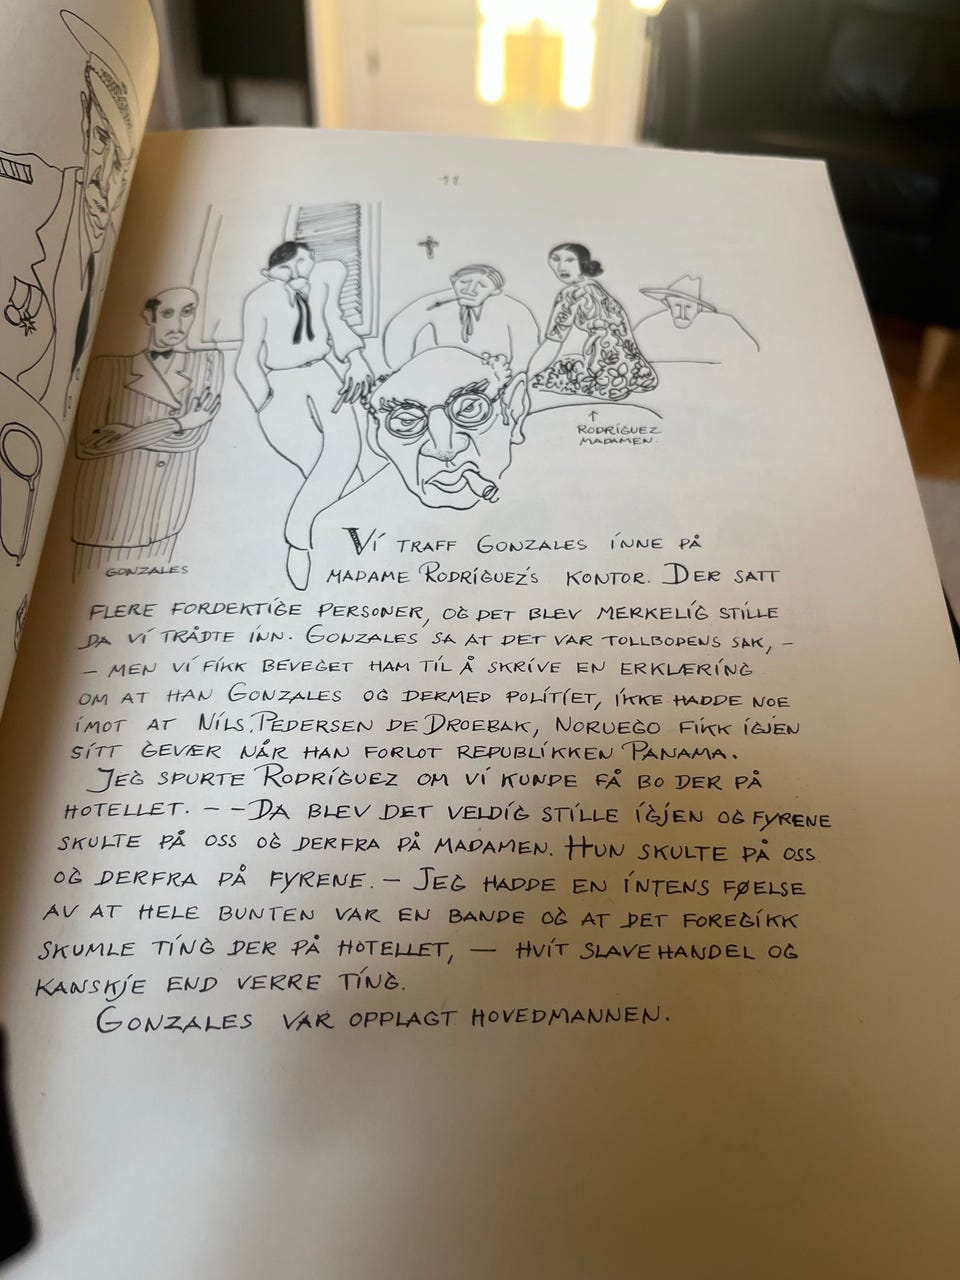 11.
RODRÍGUEZ
MADAMEN.
GONZALES
Ví TRAFF GONZALES íNNE PÅ
MADAME RODRíGUEZ'S KONTOR. DER SATT
FLERE FORDEKTíGE PERSONER, OG DET BLEV MERKELíG STíLLE
DA Ví TRÅDTE íNN. GONZALES SA AT DET VAR TOLLBODENS SAK, –
– MEN Ví FíKK BEVEGET HAM TíL Å SKRíVE EN ERKLÆRíNG
OM AT HAN GONZALES OG DERMED POLíTíET, íKKE HADDE NOE
íMOT AT NíLS. PEDERSEN DE DROEBAK, NORUEGO FíKK íGJEN
SíTT GEVÆR NÅR HAN FORLOT REPUBLíKKEN PANAMA.
JEG SPURTE RODRíGUEZ OM Ví KUNDE FÅ BO DER PÅ
HOTELLET. – – DA BLEV DET VELDíG STíLLE íGJEN OG FYRENE
SKULTE PÅ OSS OG DERFRA PÅ MADAMEN. HUN SKULTE PÅ OSS
OG DERFRA PÅ FYRENE. – JEG HADDE EN íNTENS FØELSE
AV AT HELE BUNTEN VAR EN BANDE OG AT DET FOREGíKK
SKUMLE TíNG DER PÅ HOTELLET, – HVíT SLAVEHANDEL OG
KANSKJE END VERRE TíNG.
GONZALES VAR OPPLAGT HOVEDMANNEN.